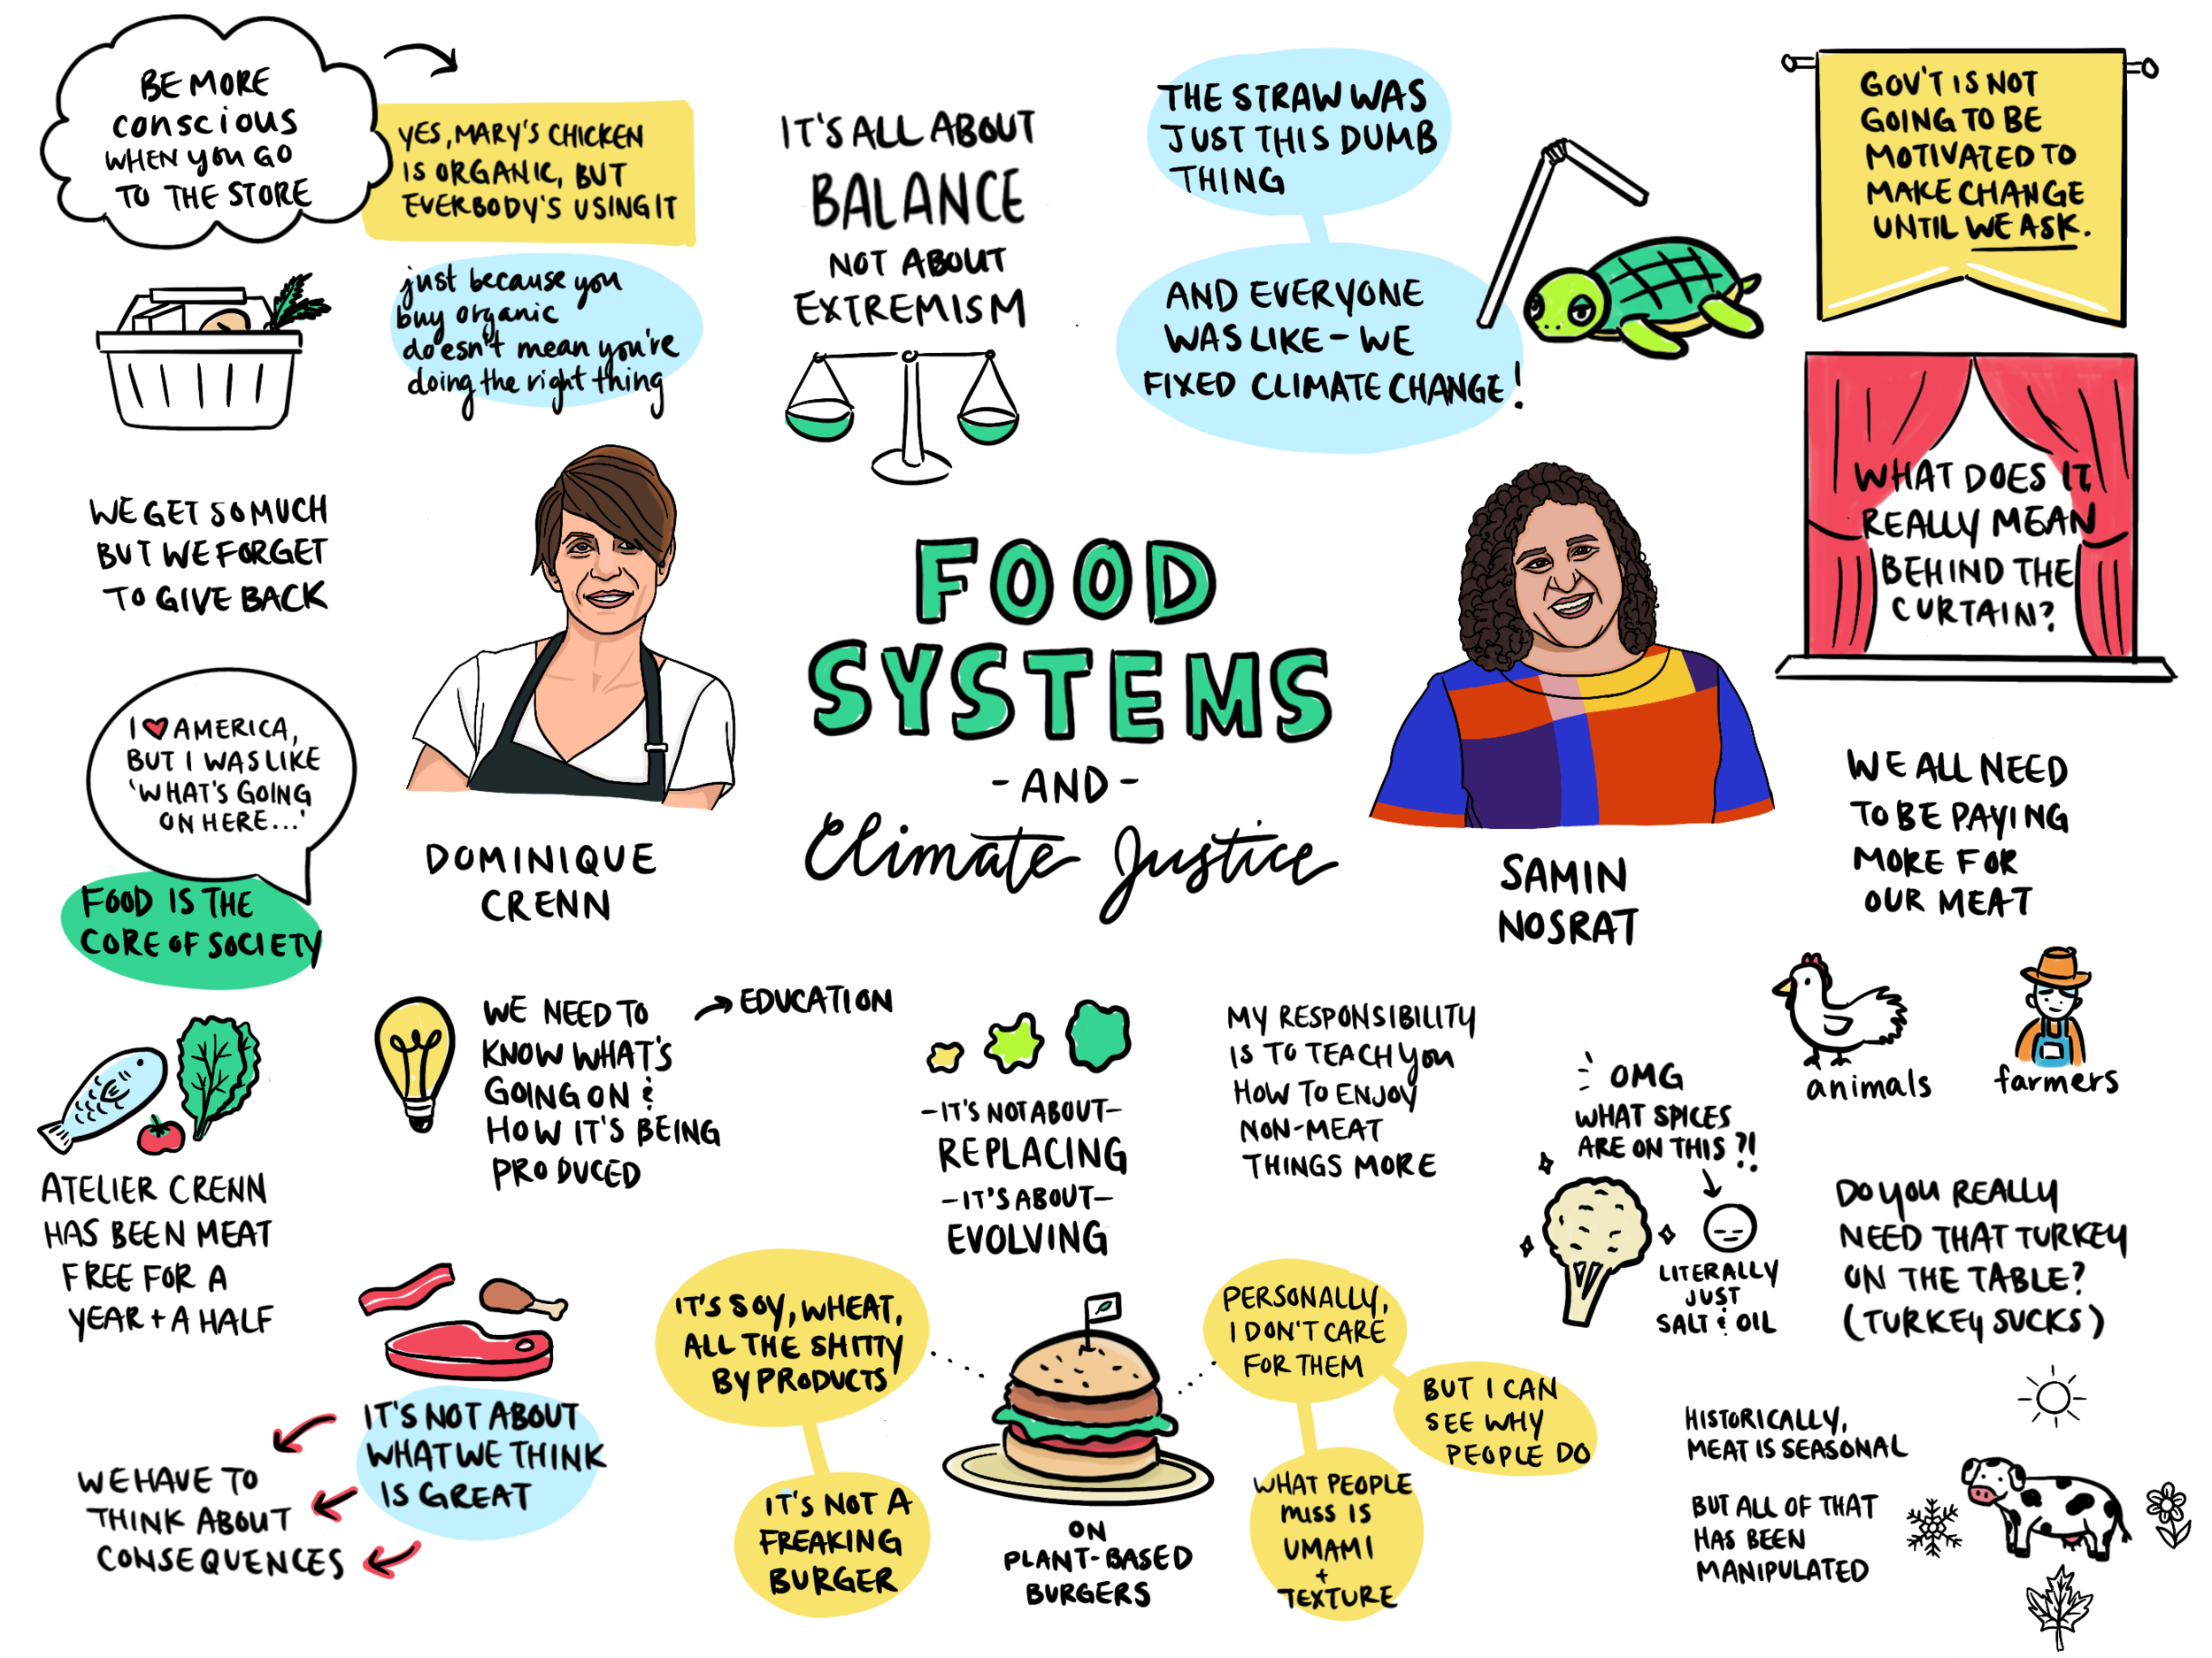 BE MORE
CONSCIOUS
WHEN YOU GO
TO THE STORE
YES, MARY'S CHICKEN
IS ORGANIC, BUT
EVERBODY'S USING IT
just because you
buy organic
doesn't mean you're
doing the right thing
IT'S ALL ABOUT
BALANCE
NOT ABOUT
EXTREMISM
THE STRAW WAS
JUST THIS DUMB
THING
AND EVERYONE
WAS LIKE - WE
FIXED CLIMATE CHANGE!
GOV'T IS NOT
GOING TO BE
MOTIVATED TO
MAKE CHANGE
UNTIL WE ASK.
WHAT DOES IT
REALLY MEAN
BEHIND THE
CURTAIN?
WE GET SO MUCH
BUT WE FORGET
TO GIVE BACK
FOOD
SYSTEMS
- AND -
Climate Justice
DOMINIQUE
CRENN
SAMIN
NOSRAT
I ♥ AMERICA,
BUT I WAS LIKE
'WHAT'S GOING
ON HERE...'
FOOD IS THE
CORE OF SOCIETY
WE ALL NEED
TO BE PAYING
MORE FOR
OUR MEAT
animals
farmers
ATELIER CRENN
HAS BEEN MEAT
FREE FOR A
YEAR + A HALF
WE NEED TO
KNOW WHAT'S
GOING ON &
HOW IT'S BEING
PRODUCED
→ EDUCATION
- IT'S NOT ABOUT -
REPLACING
- IT'S ABOUT -
EVOLVING
MY RESPONSIBILITY
IS TO TEACH YOU
HOW TO ENJOY
NON-MEAT
THINGS MORE
OMG
WHAT SPICES
ARE ON THIS ?!
LITERALLY
JUST
SALT & OIL
DO YOU REALLY
NEED THAT TURKEY
ON THE TABLE?
(TURKEY SUCKS)
IT'S NOT ABOUT
WHAT WE THINK
IS GREAT
WE HAVE TO
THINK ABOUT
CONSEQUENCES
IT'S SOY, WHEAT,
ALL THE SHITTY
BYPRODUCTS
IT'S NOT A
FREAKING
BURGER
ON
PLANT-BASED
BURGERS
PERSONALLY,
I DON'T CARE
FOR THEM
BUT I CAN
SEE WHY
PEOPLE DO
WHAT PEOPLE
MISS IS
UMAMI
+
TEXTURE
HISTORICALLY,
MEAT IS SEASONAL
BUT ALL OF THAT
HAS BEEN
MANIPULATED